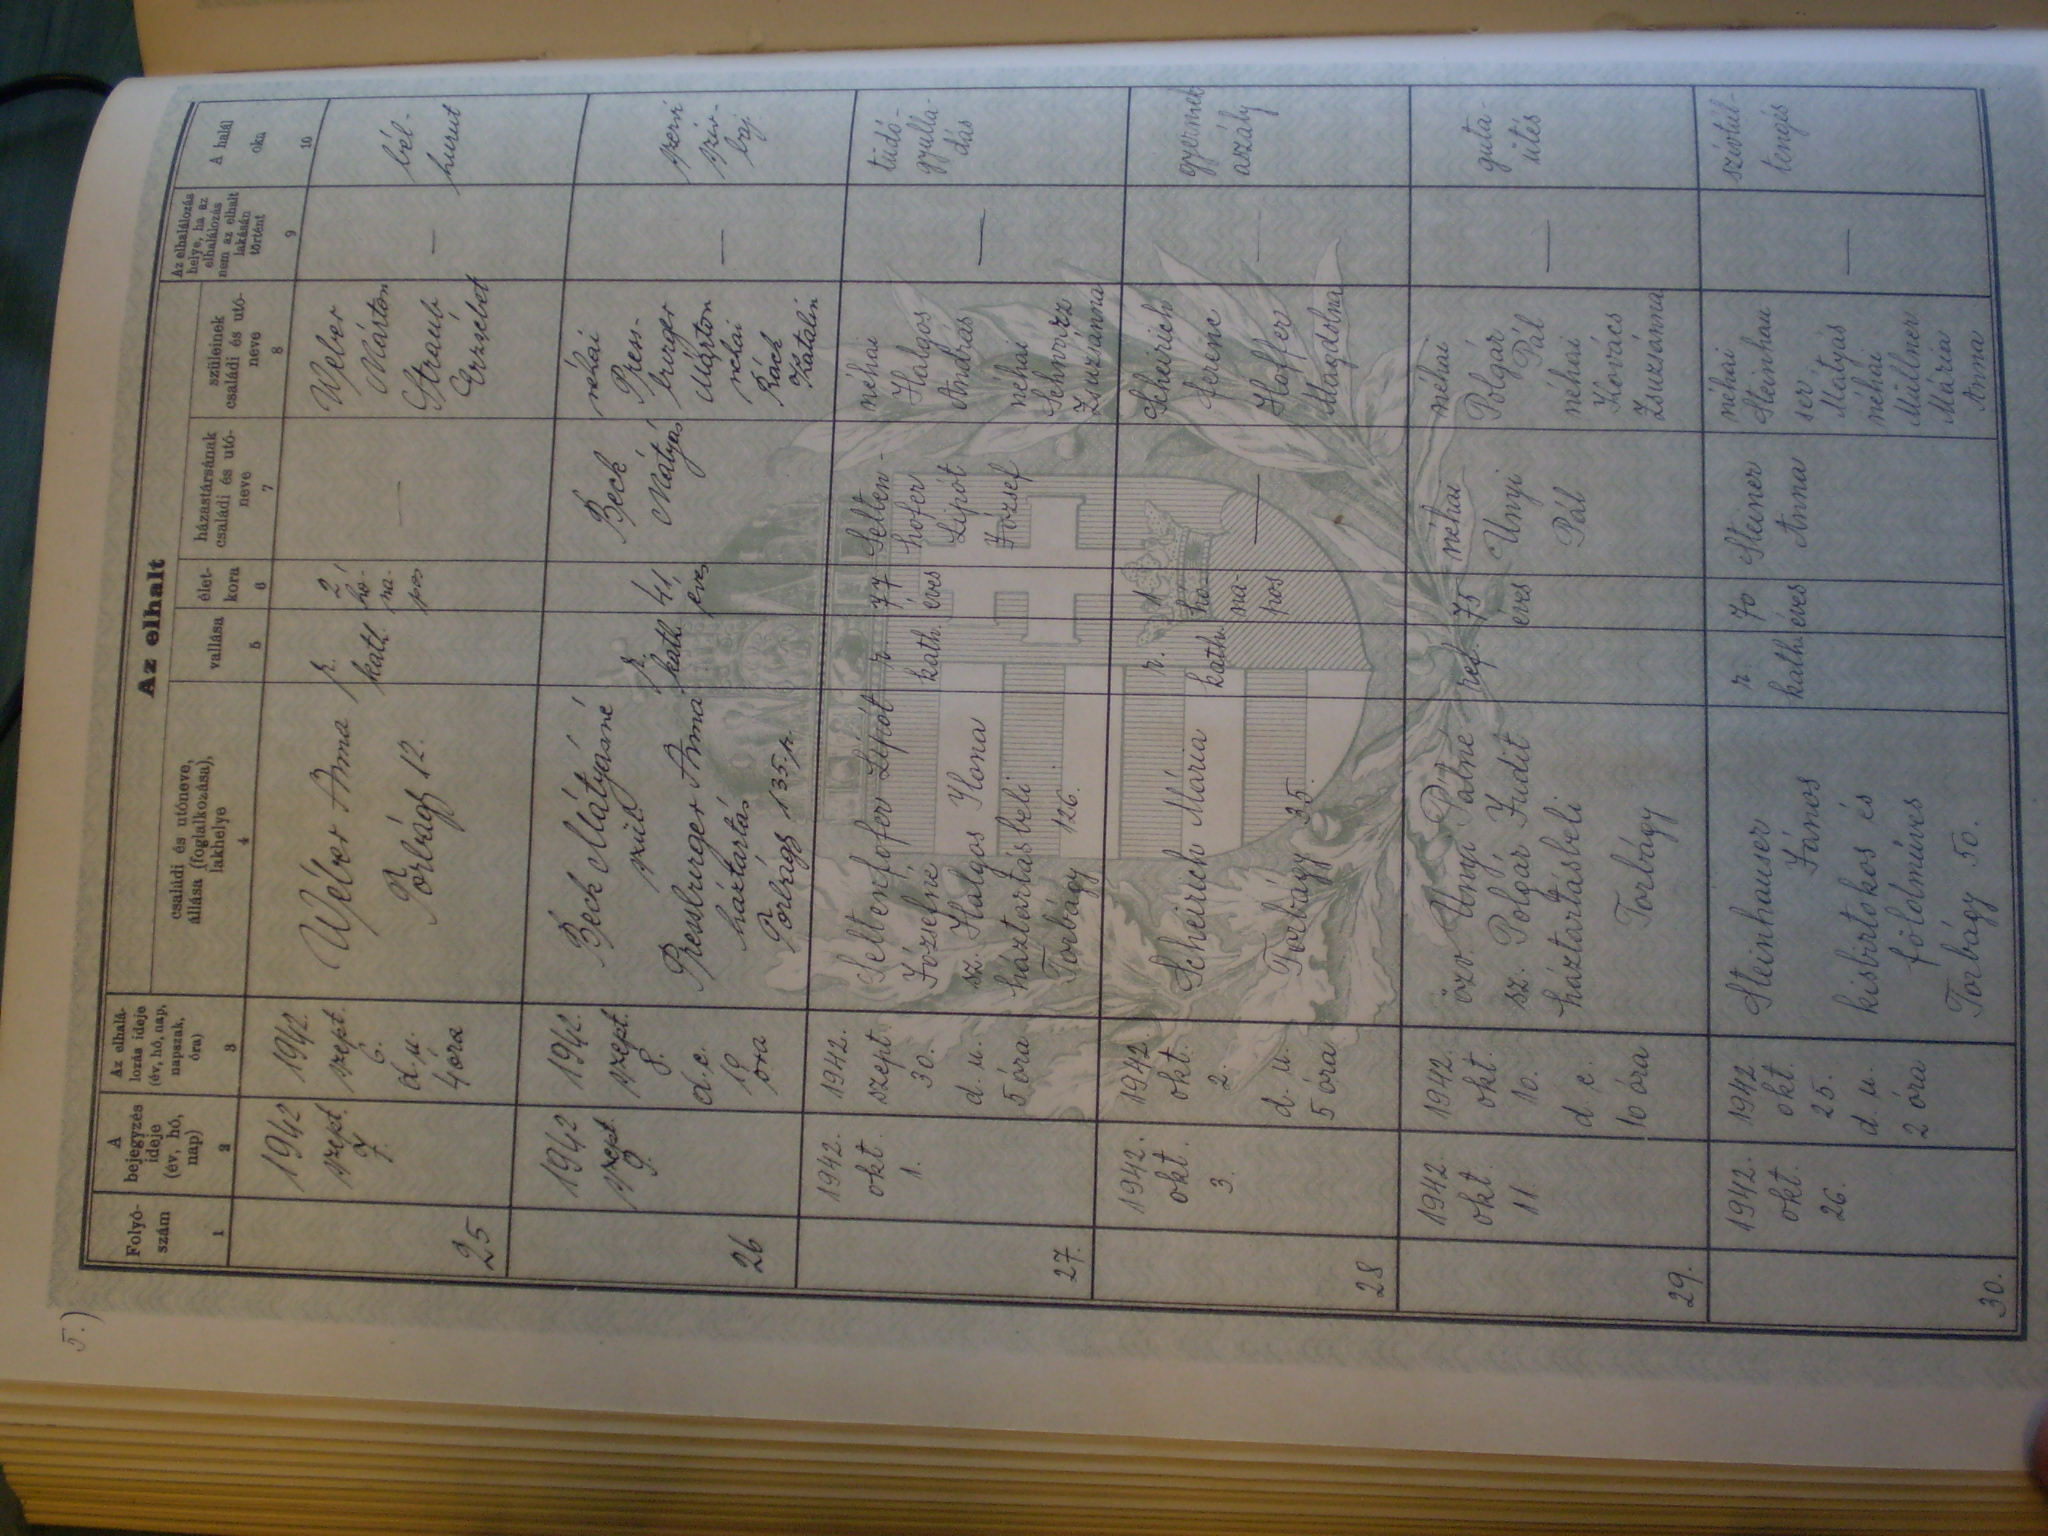 5.)
Az elhalt
Folyó-
szám
A
bejegyzés
ideje
(év, hó,
nap)
Az elhalá-
lozás ideje
(év, hó, nap,
napszak,
óra)
családi és utóneve,
állása (foglalkozása),
lakhelye
vallása
élet-
kora
házastársának
családi és utó-
neve
szüleinek
családi és utó-
neve
Az elhalálozás
helye, ha az
elhalálozás
nem az elhalt
lakásán
történt
A halál
oka
1
2
3
4
5
6
7
8
9
10
25
1942
szept.
7.
1942.
szept.
6.
d. u.
4 óra
Wéber Anna
Torbágy 12.
r.
kath.
2
hó-
na-
pos
—
Weber
Márton
Straub
Erzsébet
—
bél-
hurut
26
1942
szept.
9.
1942.
szept.
8.
d. e.
10
óra
Beck Mátyásné
szül.
Pressburger Anna
háztartás
Torbágy 135.
r.
kath.
41
éves
Beck
Mátyás
néhai
Press-
burger
Márton
néhai
Katalin
—
szervi
szív-
baj.
27.
1942.
okt.
1.
1942.
szept
30.
d. u.
5 óra
Seltenhofer Lipót
Józsefné
sz. Halgos Ilona
háztartásbeli
Torbágy 126.
r.
kath.
77
éves
Selten-
hofer
Lipót
József
néhai
Halgos
András
néhai
Schvarz
Zsuzsánna
—
tüdő-
gyulla-
dás
28
1942.
okt.
3.
1942.
okt.
2.
d. u.
5 óra
Scheirich Mária
Torbágy 35.
r.
kath.
1
hó-
na-
pos
—
Scheirich
Ferenc
Hoffer
Magdolna
—
gyermek
aszály
29.
1942.
okt
11.
1942.
okt.
10.
d. e.
10 óra
özv. Unyi Pálné
sz. Polgár Judit
háztartásbeli
Torbágy
ref.
75
éves
néhai
Unyi
Pál
néhai
Polgár
Pál
néhai
Kovács
Zsuzsánna
—
guta-
ütés
30.
1942.
okt.
26.
1942.
okt.
25.
d. u.
2 óra
Steinhauser
János
kisbirtokos és
földmüves
Torbágy 50.
r
kath.
70
éves
Steiner
Anna
néhai
Steinhau
ser
Mátyás
néhai
Müllner
Mária
Anna
—
szívtúl-
tengés